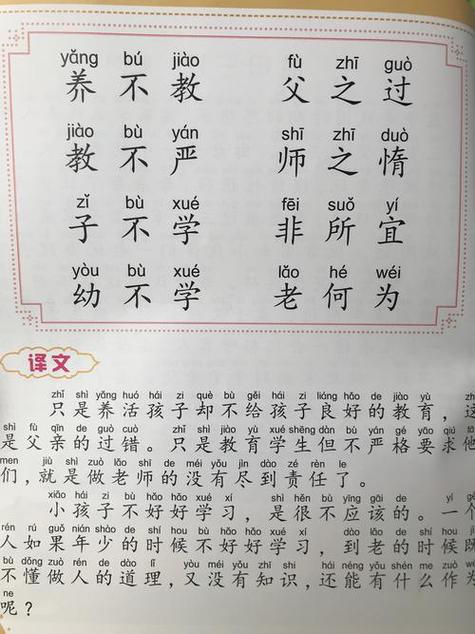 yǎng bú jiào fù zhī guò
养不教 父之过
jiào bù yán shī zhī duò
教不严 师之惰
zǐ bù xué fēi suǒ yí
子不学 非所宜
yòu bù xué lǎo hé wéi
幼不学 老何为
译文
zhǐ shì yǎng huó hái zi què bù gěi hái zi liáng hǎo de jiào yù
只是养活孩子却不给孩子良好的教育，这
shì fù qīn de guò cuò zhǐ shì jiào yù xué shēng dàn bù yán gé yāo qiú tā
是父亲的过错。只是教育学生但不严格要求他
men jiù shì zuò lǎo shī de méi yǒu jìn dào zé rèn le
们，就是做老师的没有尽到责任了。
xiǎo hái zi bù hǎo hǎo xué xí shì hěn bù yīng gāi de yí gè
小孩子不好好学习，是很不应该的。一个
rén rú guǒ nián shào de shí hou bù hǎo hǎo xué xí dào lǎo de shí hou
人如果年少的时候不好好学习，到老的时候既
bù dǒng zuò rén de dào lǐ yòu méi yǒu zhī shi hái néng yǒu shén me zuò wéi
不懂做人的道理，又没有知识，还能有什么作为
ne
呢？